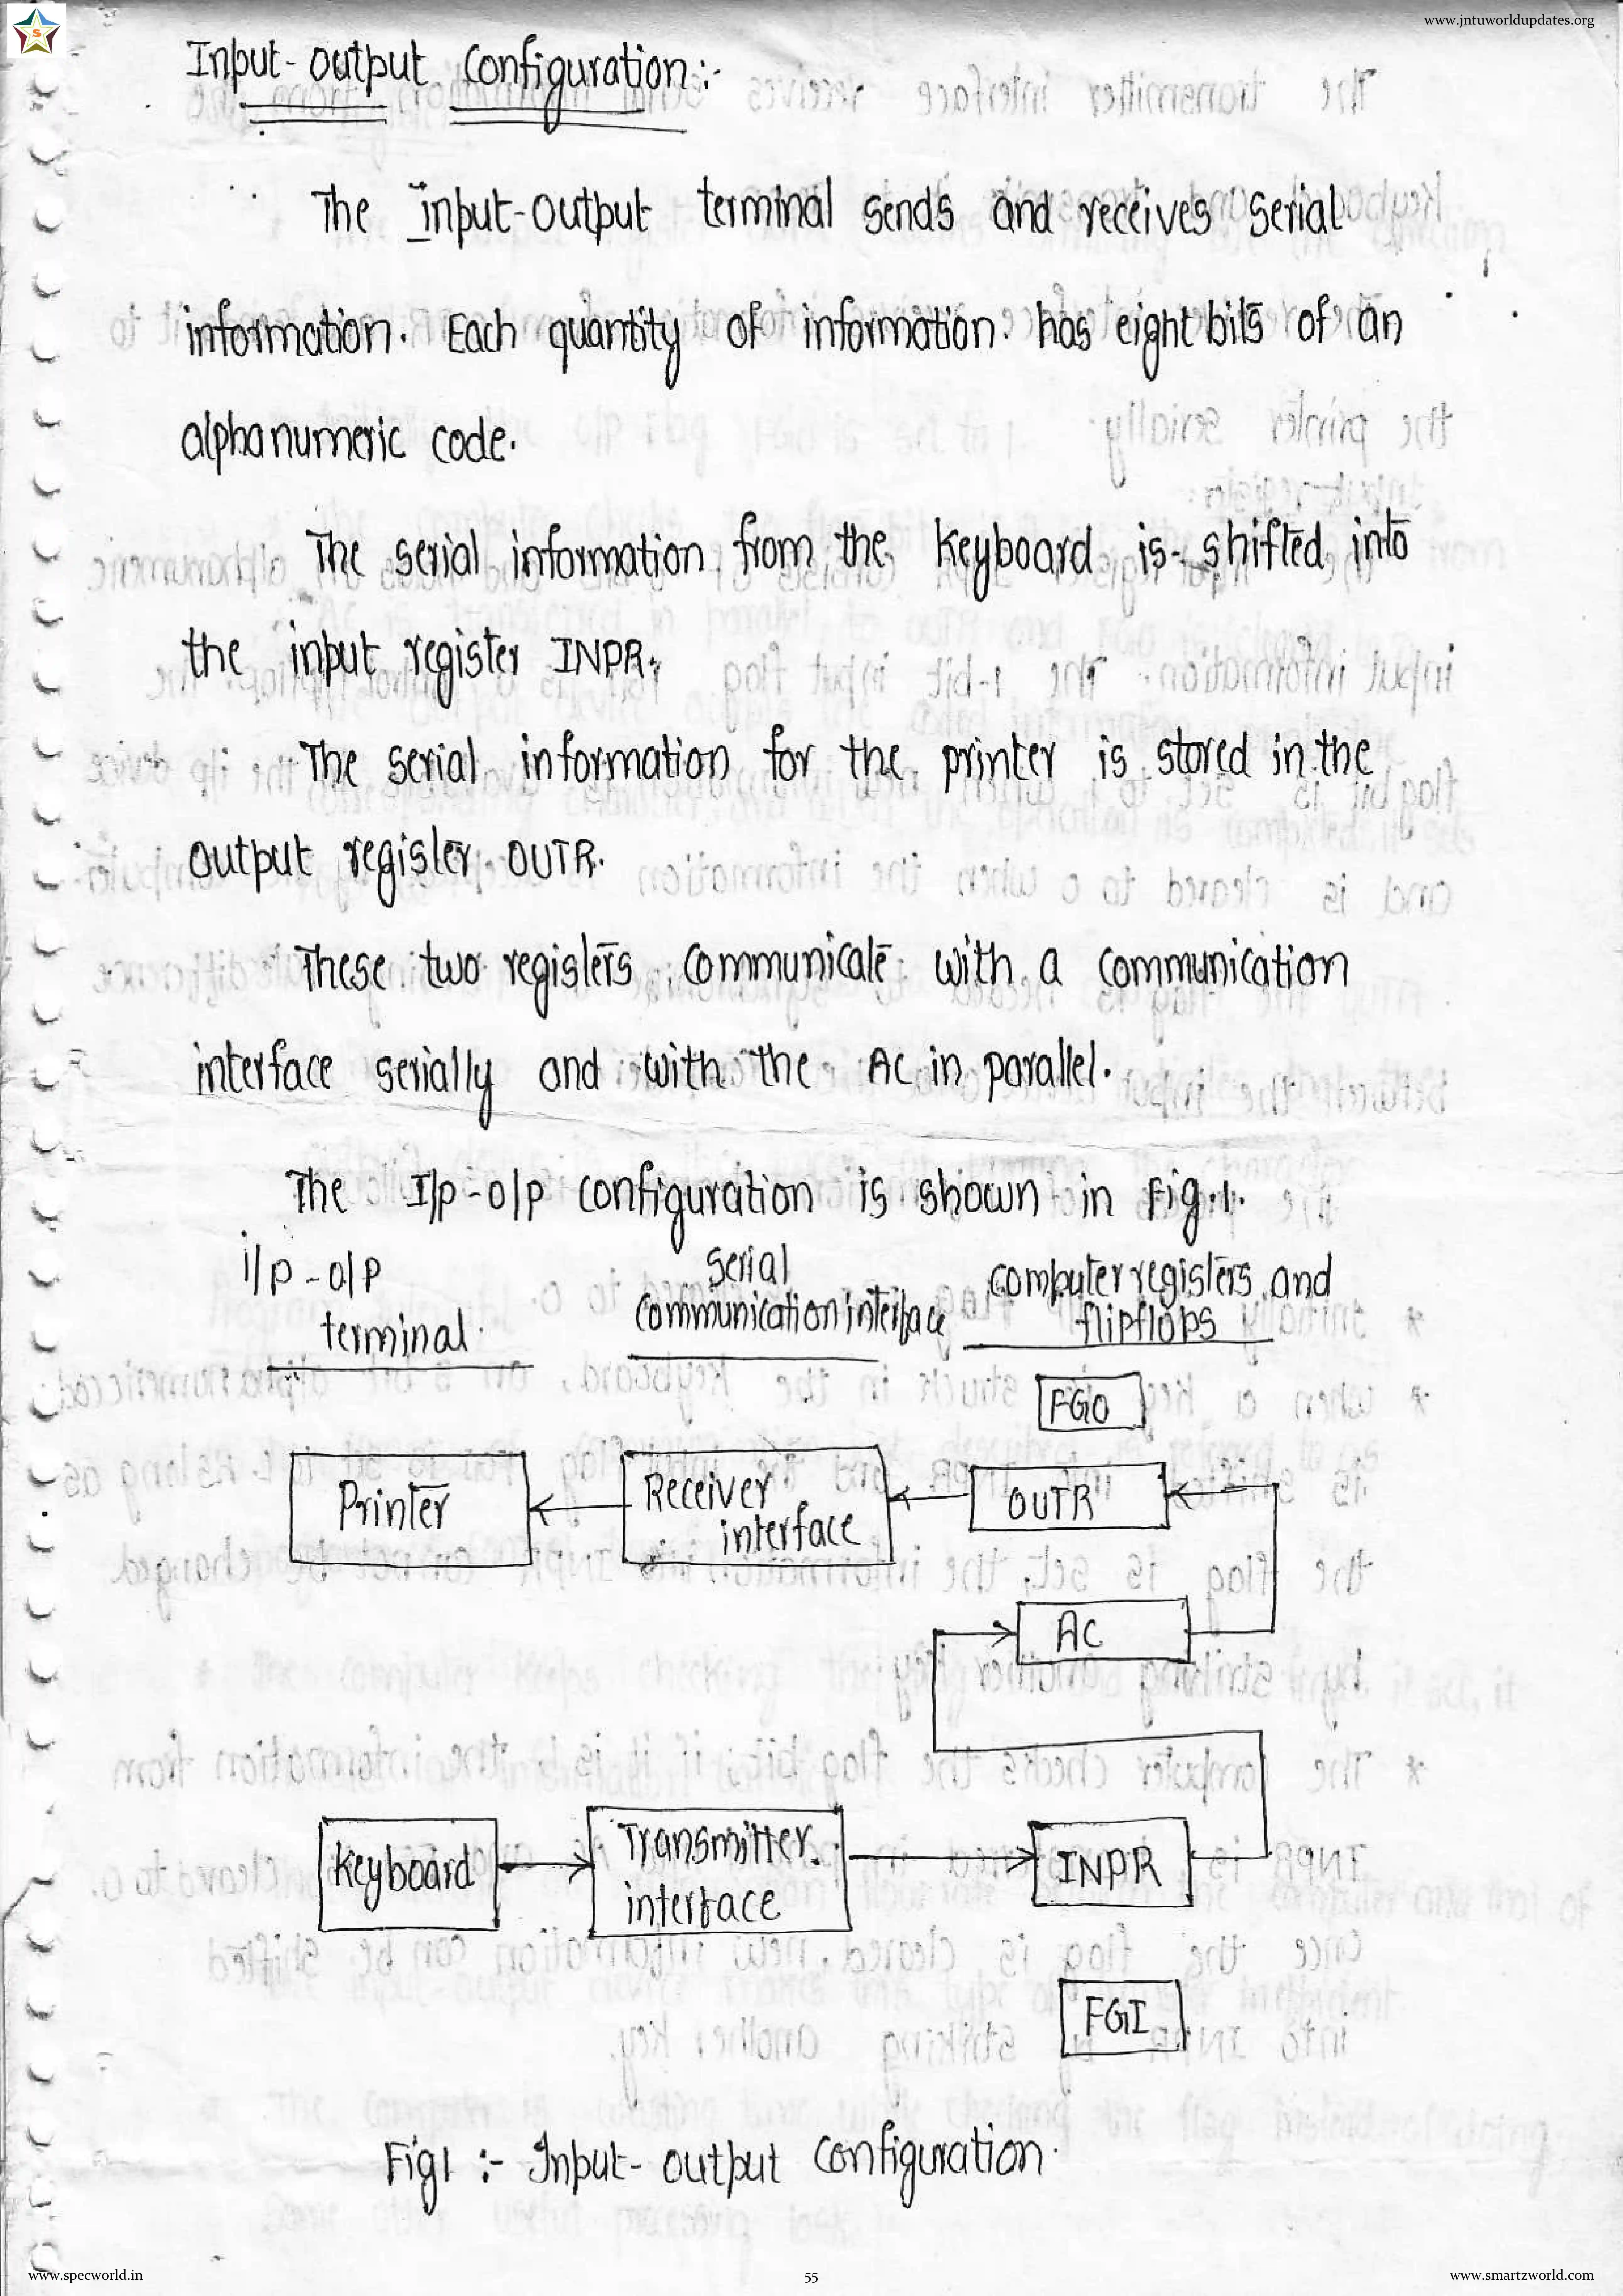 www.jntuworldupdates.org
S
Input-output Configuration:-
The input-output terminal sends and receives serial
information. Each quantity of information has eight bits of an
alphanumeric code.
The serial information from the keyboard is shifted into
the input register INPR.
The serial information for the printer is stored in the
output register OUTR.
These two registers communicate with a communication
interface serially and with the AC in parallel.
The I/p-o/p configuration is shown in Fig.1.
i/p-o/p
terminal
serial
communication interface
computer registers and
flipflops
FGO
Printer
Receiver
interface
OUTR
AC
Keyboard
Transmitter
interface
INPR
FGI
Fig1 :- Input-output configuration.
www.specworld.in
55
www.smartzworld.com